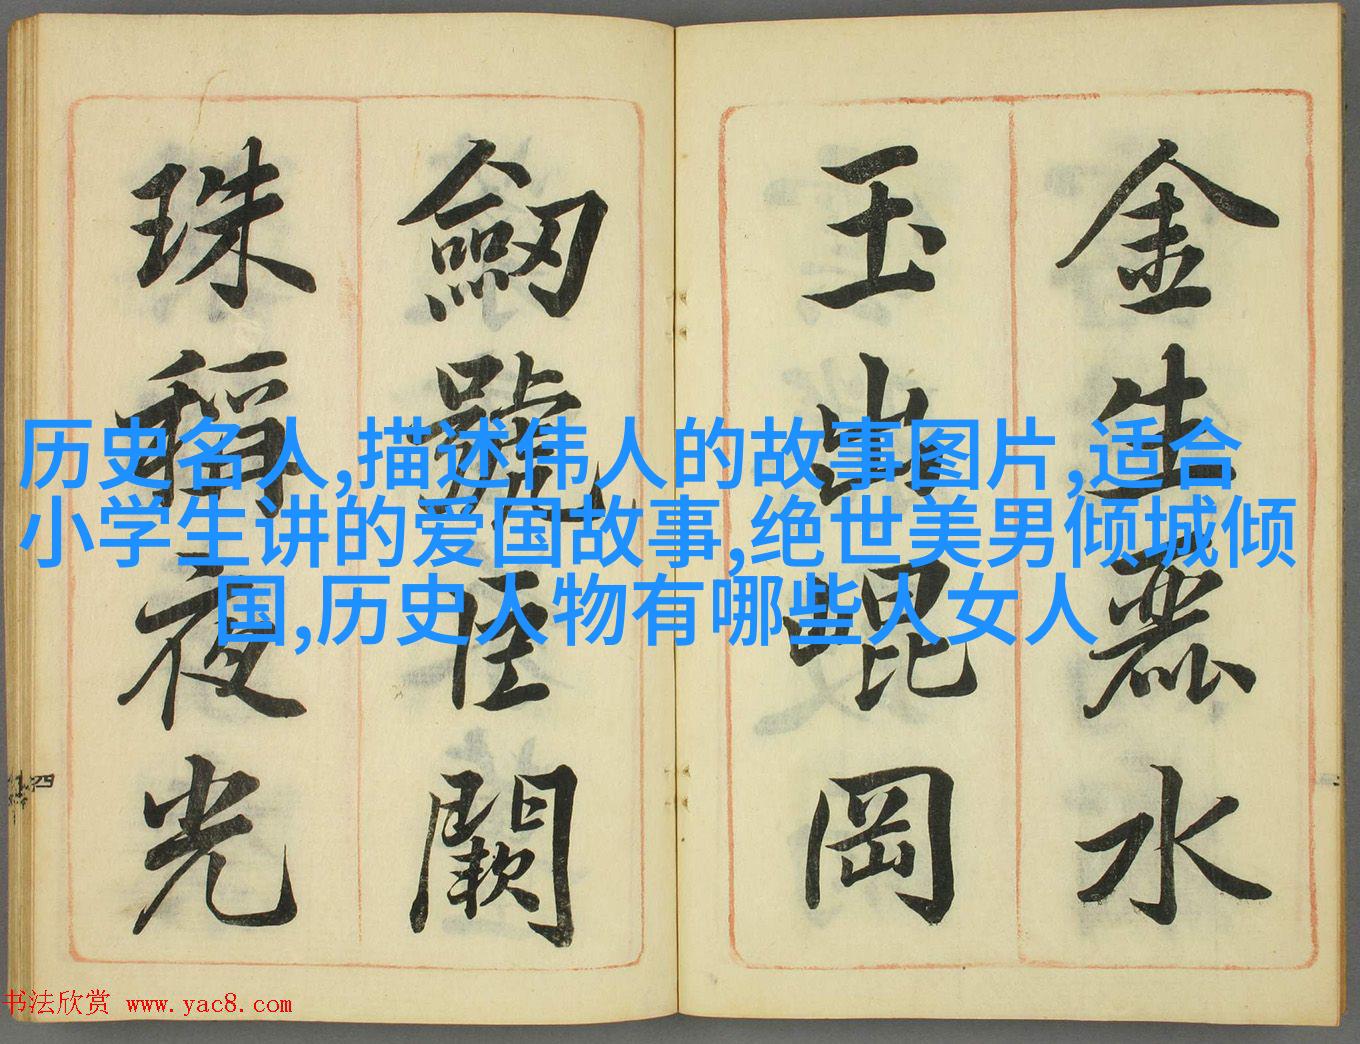 金生麗水
玉出崐岡
劒號巨闕
珠稱夜光
历史名人,描述伟人的故事图片,适合
小学生讲的爱国故事,绝世美男倾城倾
国,历史人物有哪些人女人
四
书法欣赏 www.yac8.com